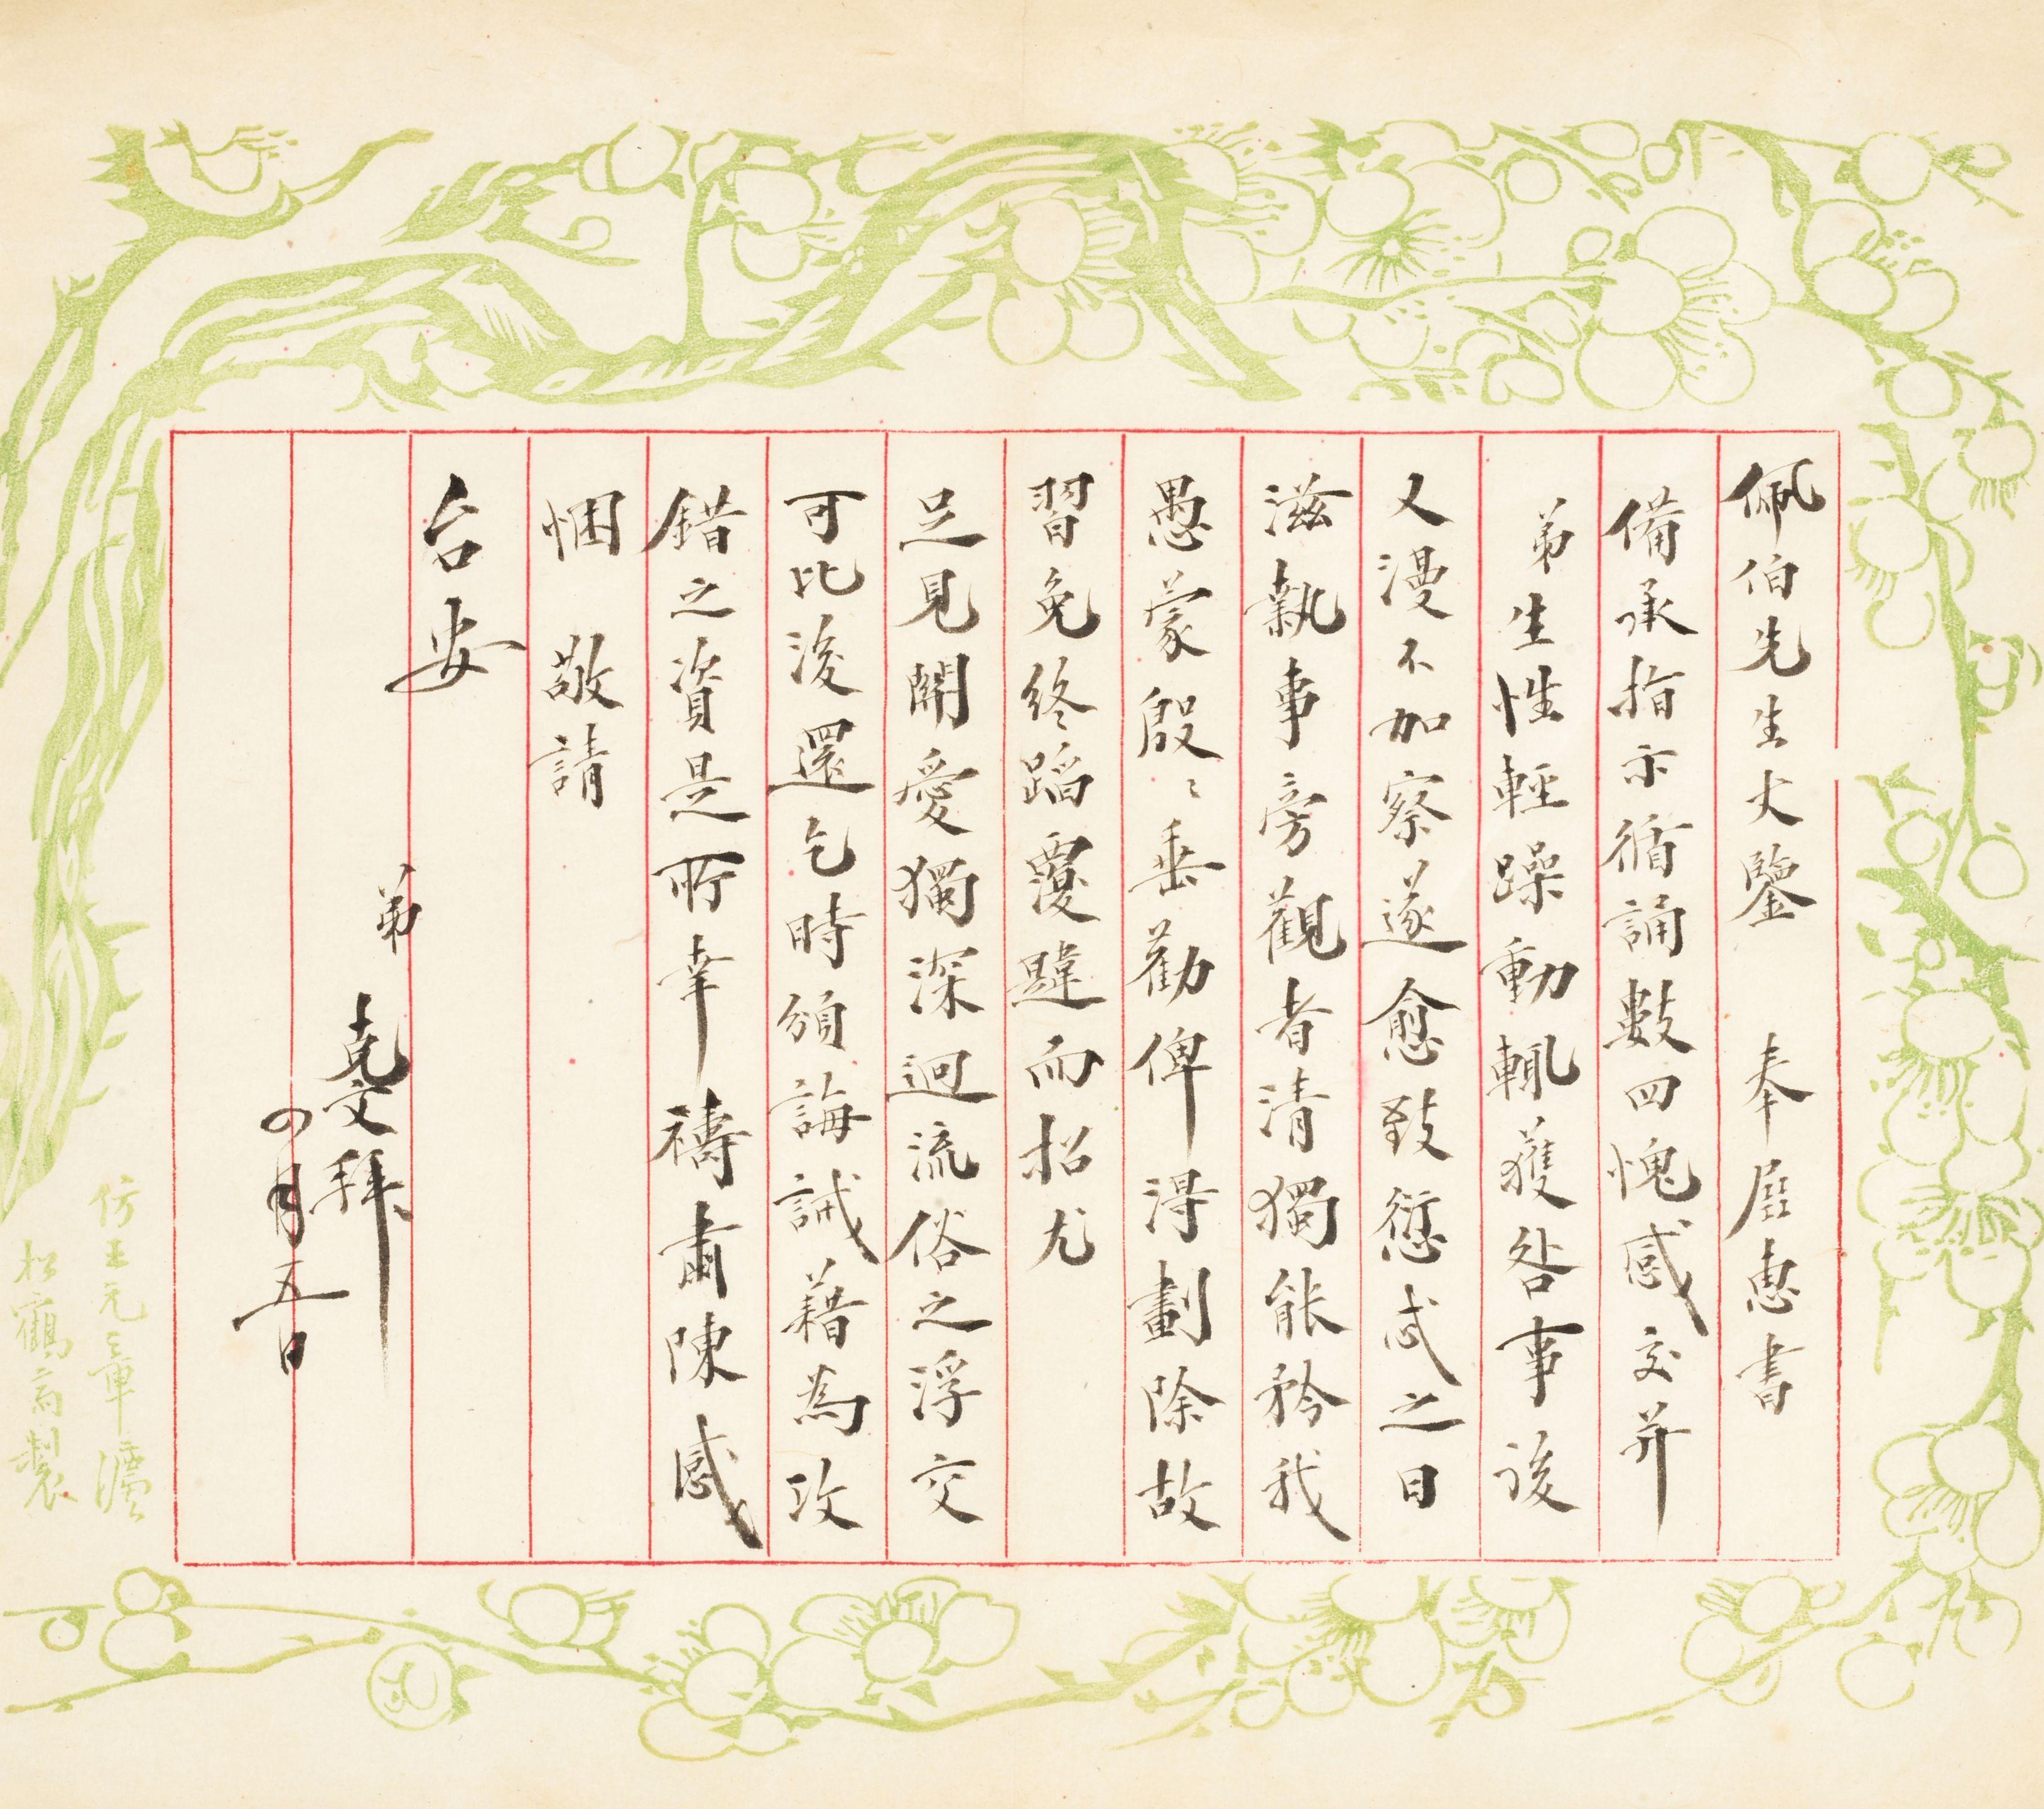 佩伯先生大鑒　奉展惠書
備承指示循誦數四愧感交并
弟生性輕躁動輒獲咎事後
又漫不加察遂愈致愆忒之日
滋執事旁觀者清獨能矜我
愚蒙殷〻垂勸俾得劃除故
習免終蹈覆轍而招尤
足見關愛獨深迥流俗之浮交
可比後還乞時頒誨誡藉為攻
錯之資是所幸禱肅陳感
悃　敬請
台安
弟　克文拜
四月五日
仿王元章瀋
松鶴齋製